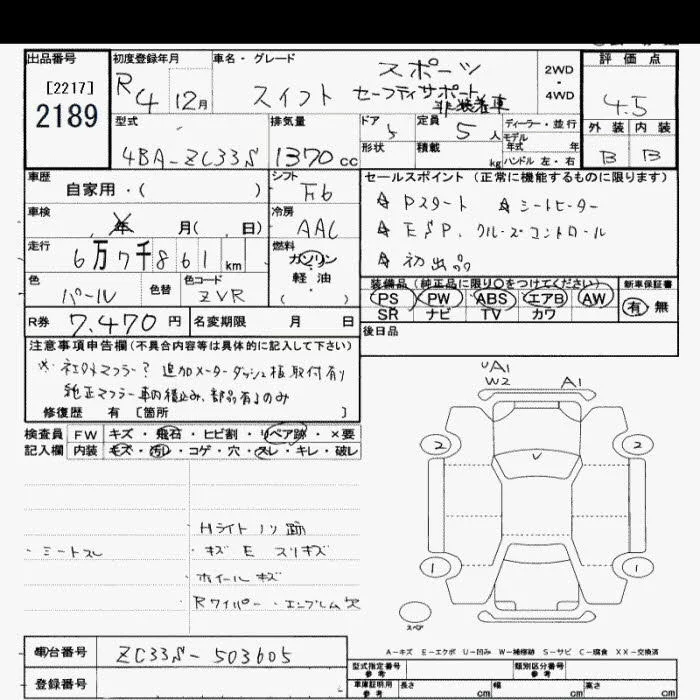 出品番号
[2217]
2189
初度登録年月
R4 12月
車名・グレード
スイフト スポーツ
セーフティサポート
非装着車
2WD
・
4WD
評価点
4.5
外装 内装
B B
型式
4BA-ZC33S
排気量
1370 cc
ドア
5
定員
5 人
ディーラー・並行
モデル
年式 年
形状
積載
kg
ハンドル 左・右
車歴
自家用・( )
シフト
F6
車検
年 月( . 日)
冷房
AAC
走行
6万7千861 km
燃料
ガソリン
・
軽油
( )
色
パール
色替
色コード
ZVR
R券 7,470 円
名変期限 月 日
セールスポイント (正常に機能するものに限ります)
☆ Pスタート ☆ シートヒーター
☆ ESP. クルーズコントロール
☆ 初出品
装備品 (純正品に限り○をつけてください)
PS PW ABS エアB AW
SR ナビ TV カワ
新車保証書
有・無
後日品
注意事項申告欄(不具合内容等は具体的に記入して下さい)
※ 社外マフラー? 追加メーターダッシュ板取付有り
純正マフラー車内積込み、部品有るのみ
修復歴 有 [箇所 ]
検査員
記入欄
FW キズ・飛石・ヒビ割・リペア跡・×要
内装 キズ・汚れ・コゲ・穴・スレ・キレ・破レ
・シートスレ
・Hライト ノリ跡
・キズ E スリキズ
・ホイールキズ
・Rワイパー・エンブレム欠
UA1
W2
A1
2
2
V
1
1
スペア
A-キズ E-エクボ U-凹み W-補修跡 S-サビ C-腐食 XX-交換済
車台番号
ZC33S-503605
登録番号
型式指定番号
参考
類別区分番号
参考
車庫証明用
参考
長さ cm
幅 cm
高さ cm